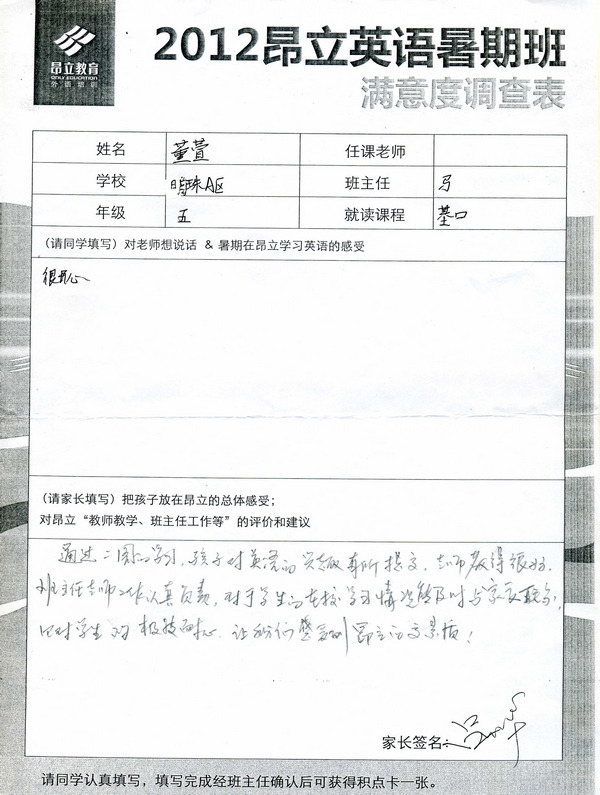 昂立教育
ONLY EDUCATION
外语培训
2012昂立英语暑期班
满意度调查表
姓名 董萱 任课老师
学校 明珠A区 班主任 马
年级 五 就读课程 基口
(请同学填写)对老师想说话 & 暑期在昂立学习英语的感受
很开心
(请家长填写)把孩子放在昂立的总体感受；
对昂立“教师教学、班主任工作等”的评价和建议
通过二周的学习，孩子对英语的兴趣有所提高，老师教得很好，
班主任老师工作认真负责，对于学生的在校学习情况能及时与家长联系，
且对学生的极其耐心，让我们感受到昂立的高素质！
家长签名：
请同学认真填写，填写完成经班主任确认后可获得积点卡一张。